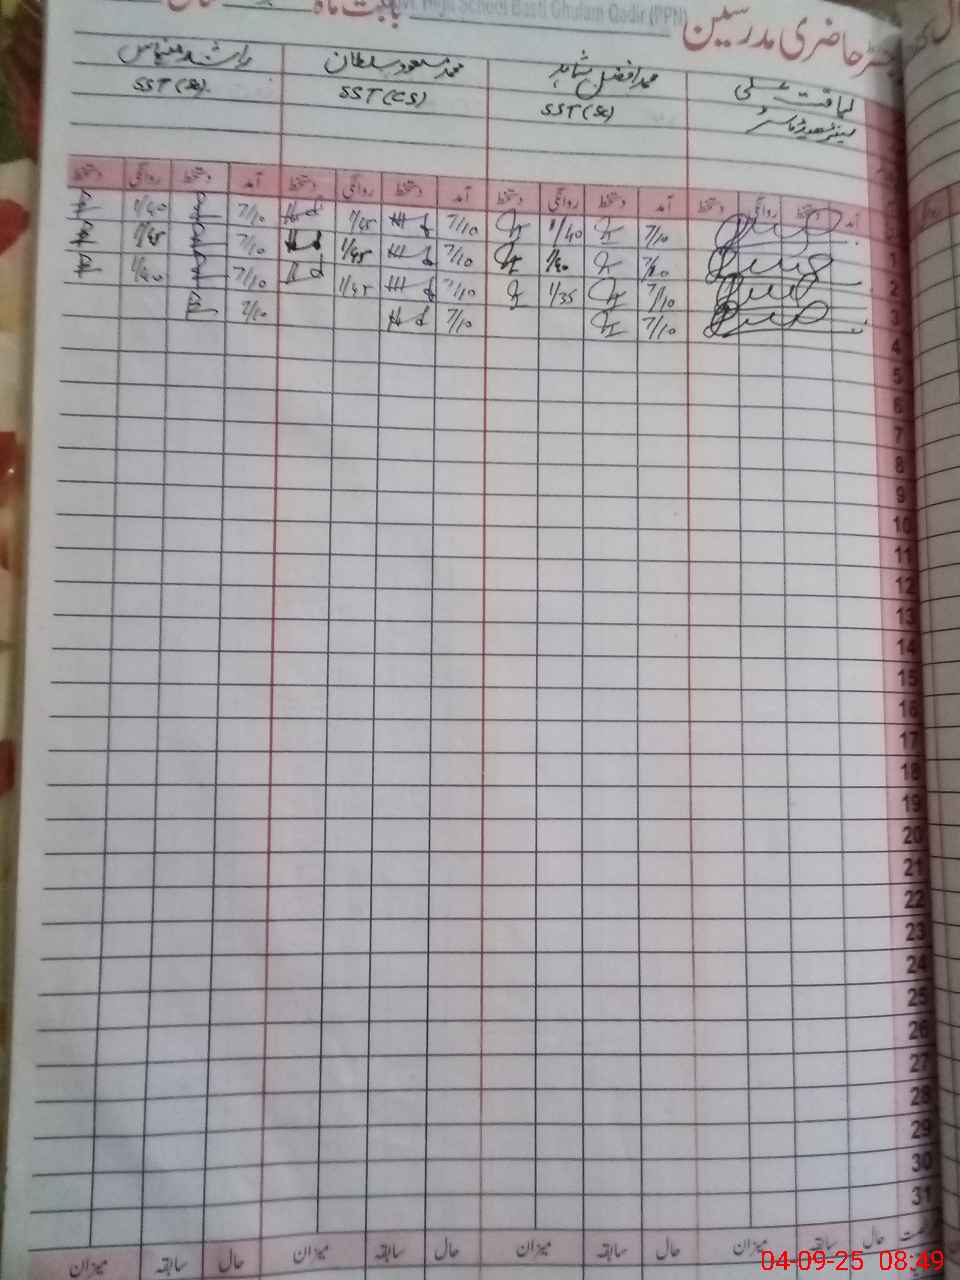 High School Basti Ghulam Qadir (PPN)
رجسٹر حاضری مدرسین بابت ماہ
لیاقت علی محمد افضل شاہد محمد مسعود سلطان راشد
سینئر ہیڈ ماسٹر SST (Sc) SST (CS) SST (Sc)
آمد دستخط روانگی دستخط آمد دستخط روانگی دستخط آمد دستخط روانگی دستخط آمد دستخط روانگی دستخط
1 7/10 1/40 7/10 1/45 7/10 1/40
2 7/10 1/40 7/10 1/45 7/10 1/45
3 7/10 1/35 7/10 1/45 7/10 1/40
4 7/10 7/10 7/10
5
6
7
8
9
10
11
12
13
14
15
16
17
18
19
20
21
22
23
24
25
26
27
28
29
30
31
حال سابقہ میزان حال سابقہ میزان حال سابقہ میزان حال سابقہ میزان
04-09-25 08:49